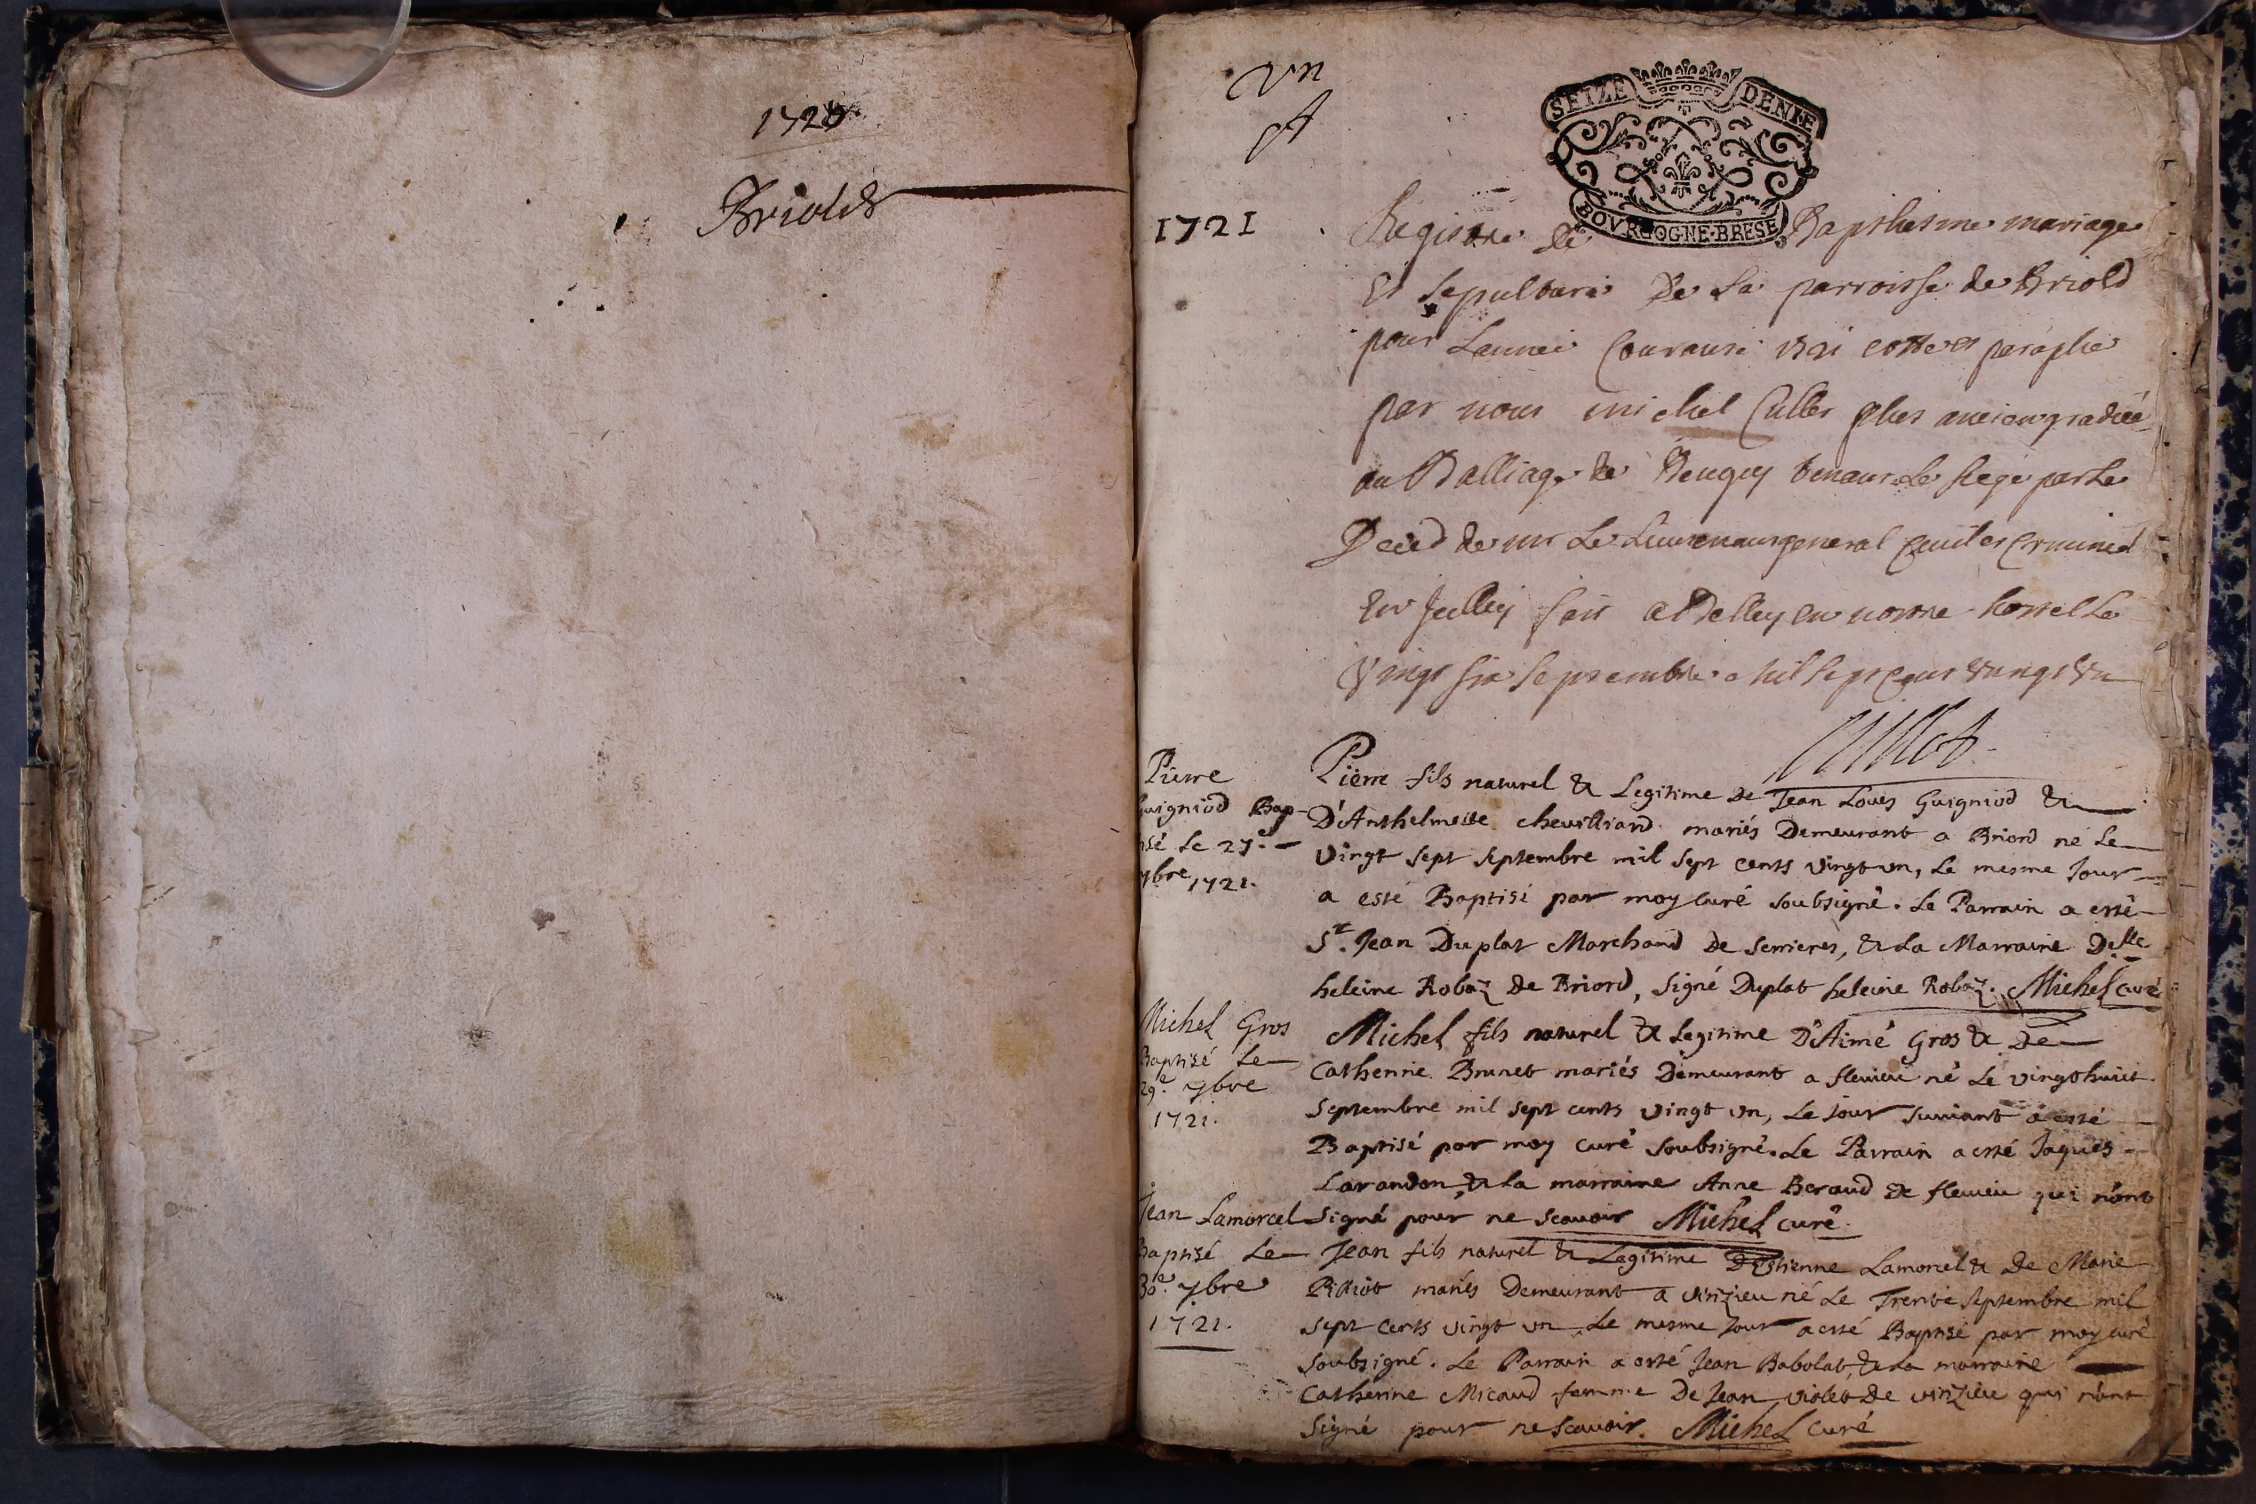 1720
Briold
vn
SEIZE DENIE
BOVRGOGNE·BRESE
1721
Registre de Bapthesme mariage
Et sepulture De La parroisse de Briold
pour Lannee Courante 1721 cotte et paraphe
par nous michel Cullet plus ancien gradué
au Balliage de Beugey tenant Le siege par Le
Deced de mr Le Lieutenant general Ciuil et Criminel
fait a Belley en nostre hostel Le
Vingt six septembre mil sept cent vingt Vn
Cullet
Pierre
Guigniod Bap-
tisé le 27.e
7bre 1721.
Pierre fils naturel & Legitime De Jean Loues Guigniod &
D'Anthelmette chevilliard mariés Demeurant a Briord né Le
vingt sept septembre mil sept cents vingt vn, Le mesme Jour
a esté Baptisé par moy curé soubsigné. Le Parrain a esté
Sr. Jean Duplat Marchand De Serrieres, & La Marraine Delle
heleine Robaz De Briord, signé Duplat heleine Robaz. Michel curé
Michel Gros
Baptisé Le
29.e 7bre
1721.
Michel fils naturel & Legitime D'Aimé Gros & De
Catherine Brunet mariés Demeurant a fleurieu né Le vingt huict
septembre mil sept cents vingt vn, Le Jour suivant a esté
Baptisé par moy curé soubsigné. Le Parrain a esté Jaques
Larandon, & La marraine Anne Beraud De fleurieu qui n'ont
signé pour ne scavoir Michel curé.
Jean Lamorcel
Baptisé Le
30.e 7bre
1721.
Jean fils naturel & Legitime D'Estienne Lamorcel & De Marie
mariés Demeurant a virizieu né Le Trente septembre mil
sept cents vingt vn, Le mesme Jour a esté Baptisé par moy curé
soubsigné. Le Parrain a esté Jean Babolat, & La marraine
Catherine Micaud femme De Jean violet De virizieu qui n'ont
signé pour ne scavoir. Michel curé